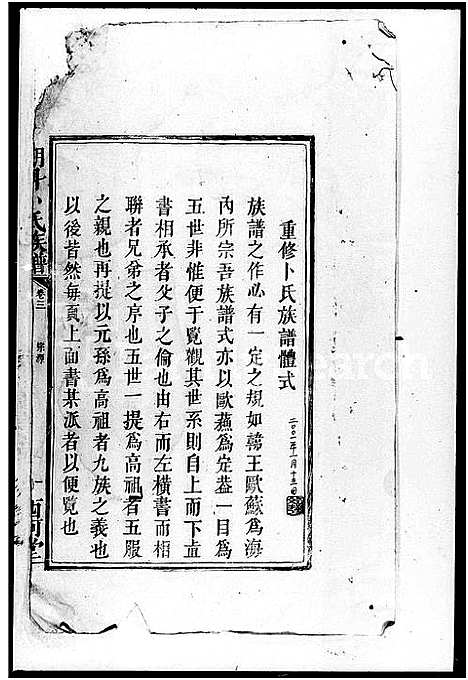 重修卜氏族譜體式
二〇〇二年一月十五日
族譜之作必有一定之規如韓王歐蘇為海
內所宗吾族譜式亦以歐蘇為定葢一目為
五世非惟便于覽觀其世系則自上而下直
書相承者父子之倫也由右而左橫書而相
聯者兄弟之序也五世一提為高祖者五服
之親也再提以元孫為高祖者九族之義也
以後皆然每頁上面書某派者以便覽也
卜氏族譜
卷三
西河堂